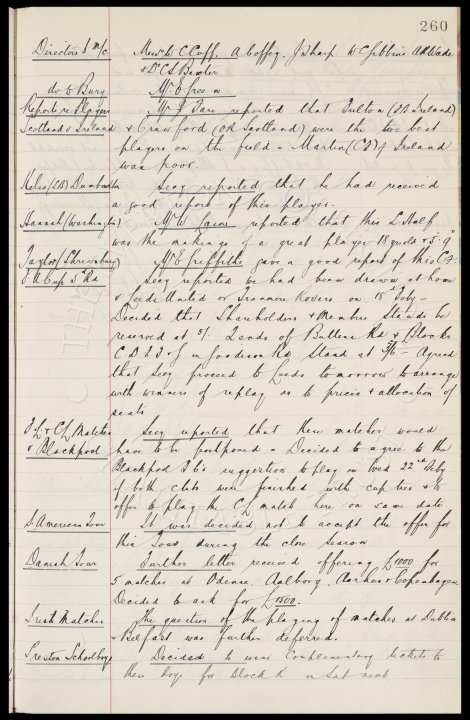 260
Directors I m/c Messrs W C Cuff. A Coffey. J Sharp W C Gibbins A R Wade
& Dr C S Baxter
do. to Bury Mr E Green
Reports re Players Mr J Fare reported that Fulton (OR Ireland)
Scotland v Ireland & Crawford (OR Scotland) were the two best
players on the field - Martin (CF) of Ireland
was poor.
Kelso (LB) Dumbarton Secy reported that he had received
a good report of this player.
Hannah (Washington) Mr W Sawyer reported that this L Half
was the makings of a great player 18 yrs old & 5' 9"
Taylor (Shrewsbury) Mr E Griffiths gave a good report of this CF
F A Cup 5th Rd Secy reported we had been drawn at home
v Leeds United or Tranmere Rovers on 18th Feby -
Decided that Shareholders & Members Stands be
reserved at 5/. Ends of Bullens Rd & Blocks
C D E & F in Goodison Rd Stand at 3/6 - Agreed
that Secy proceed to Leeds tomorrow to arrange
with winners of replay as to prices & allocation of
seats
F L & C L Matches Secy reported that these matches would
v Blackpool have to be postponed - Decided to agree to the
Blackpool F C's suggestion to play on Wed 22nd Feby
if both clubs were finished with cup ties & to
offer to play the C L match here on same date
S. American Tour It was decided not to accept the offer for
this Tour during the close season
Danish Tour Further letter received offering £1000 for
5 matches at Odense, Aalborg, Aarhus & Copenhagen.
Decided to ask for £1500.
Irish Matches The question of the playing of matches at Dublin
& Belfast was further deferred.
Preston Schoolboys Decided to issue Complimentary tickets to
these boys for Block K on Sat next.